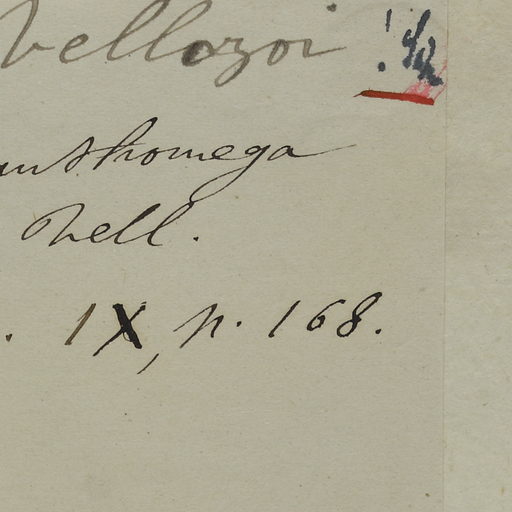 Vellozoi !
anthomega
Vell.
. IX, p. 168.